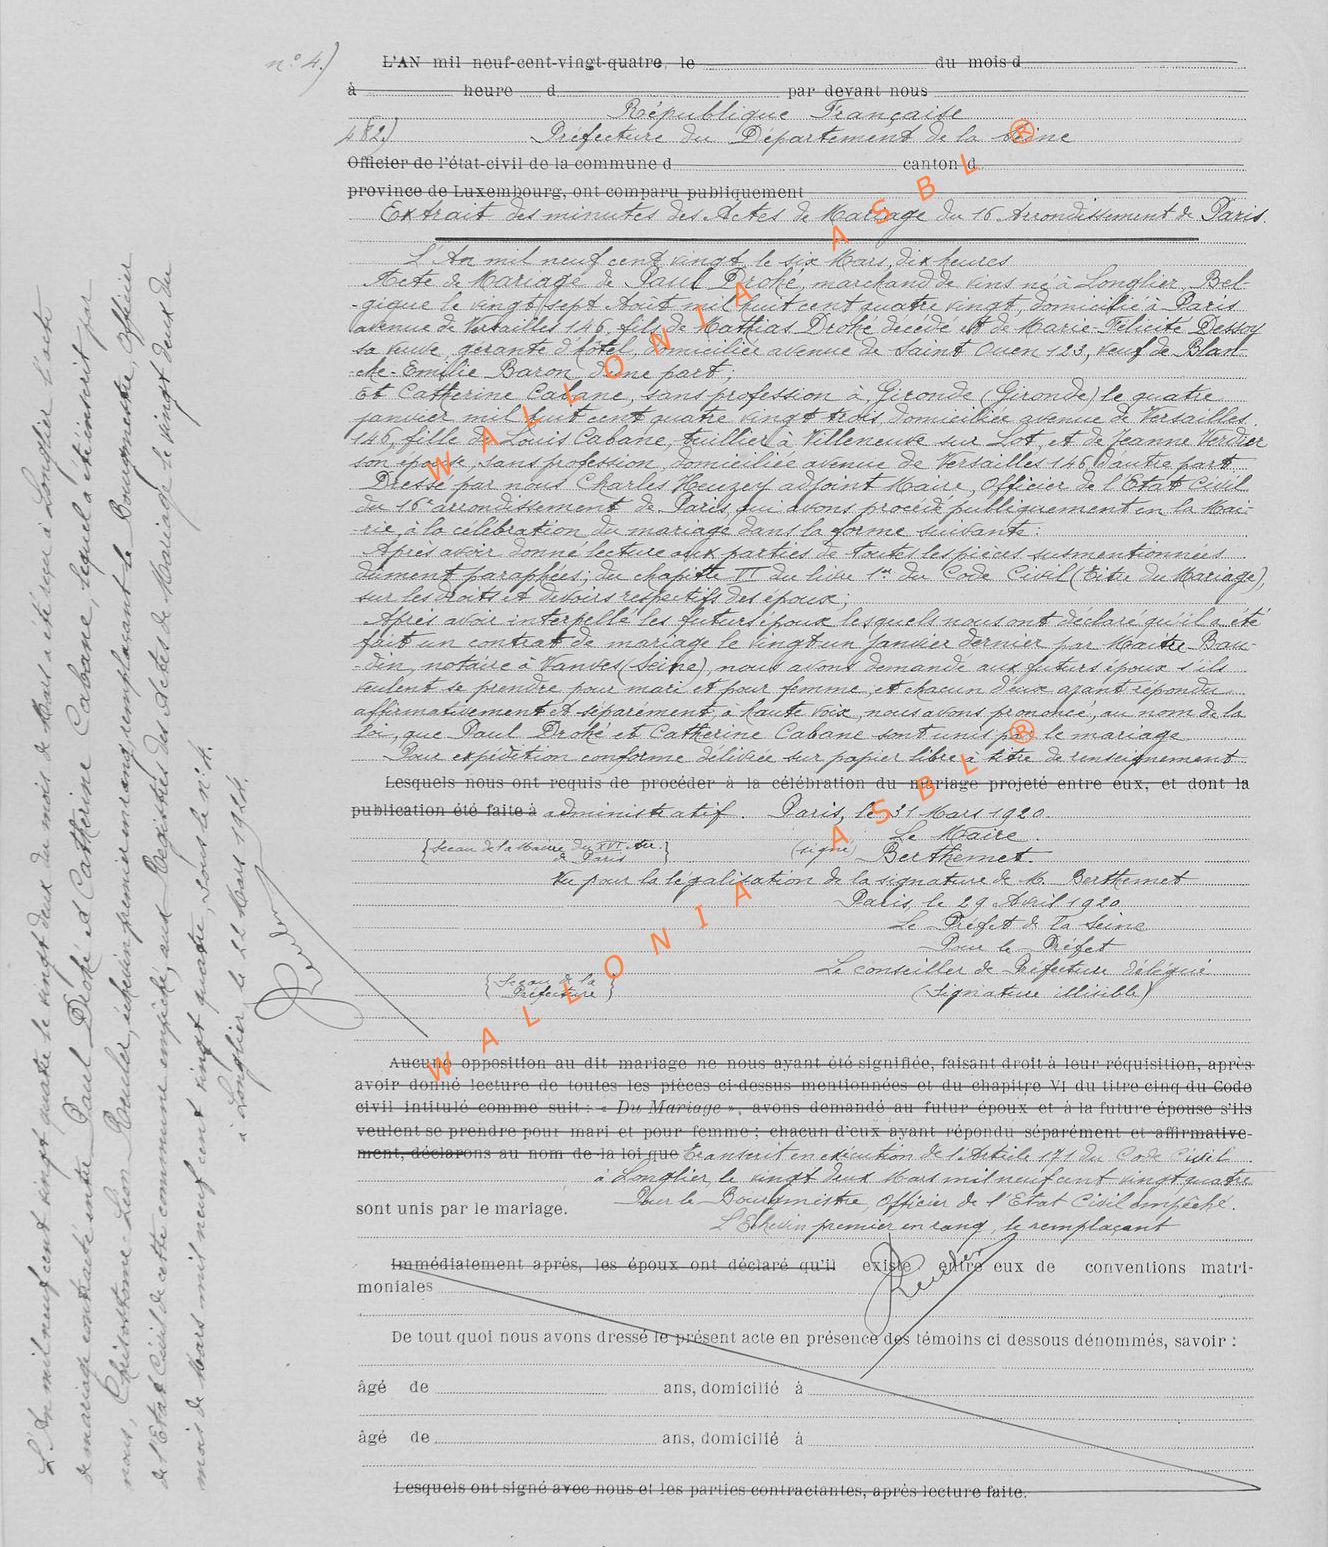 n° 4.)
L'AN mil neuf-cent-vingt-quatre, le du mois d
à heure d par devant nous
République Française
482.) Préfecture du Département de la Seine
Officier de l'état-civil de la commune d canton d
province de Luxembourg, ont comparu publiquement
Extrait des minutes des Actes de Mariage du 16 Arrondissement de Paris.
L'An mil neuf cent vingt le six Mars, dix heures
Acte de Mariage de Paul Droké, marchand de vins né à Longlier, Bel-
-gique le vingt sept Août mil huit cent quatre vingt, domicilié à Paris
avenue de Versailles 146, fils de Mathias Droke décédé et de Marie-Félicité Dessoy
sa veuve, gérante d'hôtel, domiciliée avenue de Saint Ouen 123, veuf de Blan-
-che-Emilie Baron d'une part;
Et Catherine Cabane, sans profession à, Gironde (Gironde) le quatre
janvier mil huit cent quatre vingt trois, domiciliée avenue de Versailles
146, fille de Louis Cabane, tuillier à Villeneuve sur Lot, et de Jeanne Verdier
son épouse, sans profession, domiciliée avenue de Versailles 146 d'autre part
Dressé par nous Charles Heuzey adjoint Maire, Officier de l'Etat Civil
du 16e arrondissement de Paris, qui avons procédé publiquement en la Mai-
rie, à la célébration du mariage dans la forme suivante:
Après avoir donné lecture aux parties de toutes les pièces susmentionnées
dûment paraphées; du chapitre VI du livre 1er du Code Civil (Titre du Mariage),
sur les droits et devoirs respectifs des époux;
Après avoir interpellé les futurs époux lesquels nous ont déclaré qu'il a été
fait un contrat de mariage le vingt un janvier dernier par Maître Bau-
-din, notaire à Vanves (Seine), nous avons demandé aux futurs époux s'ils
veulent se prendre pour mari et pour femme, et chacun d'eux ayant répondu
affirmativement et séparément, à haute voix, nous avons prononcé, au nom de la
loi, que Paul Droké et Catherine Cabane sont unis par le mariage
Pour expédition conforme délivrée sur papier libre à titre de renseignement
Lesquels nous ont requis de procéder à la célébration du mariage projeté entre eux, et dont la
publication été faite à administratif. Paris, le 31 Mars 1920.
Le Maire.
{Sceau de la Mairie du XVI Arr. de Paris} (signé) Berthemet.
Vu pour la légalisation de la signature de M. Berthemet
Paris, le 29 Avril 1920
Le Préfet de la Seine
Pour le Préfet
Le conseiller de Préfecture délégué
{Sceau de la Préfecture} (Signature illisible)
Aucune opposition au dit mariage ne nous ayant été signifiée, faisant droit à leur réquisition, après
avoir donné lecture de toutes les pièces ci-dessus mentionnées et du chapitre VI du titre cinq du Code
civil intitulé comme suit : « Du Mariage », avons demandé au futur époux et à la future épouse s'ils
veulent se prendre pour mari et pour femme ; chacun d'eux ayant répondu séparément et affirmative-
ment, déclarons au nom de la loi que Transcrit en exécution de l'Article 171 du Code Civil
à Longlier, le vingt deux Mars mil neuf cent vingt quatre
Pour le Bourgmestre, Officier de l'Etat Civil empêché.
sont unis par le mariage.
L'Echevin premier en rang, le remplaçant
Immédiatement après, les époux ont déclaré qu'il existe entre eux de conventions matri-
moniales
De tout quoi nous avons dressé le présent acte en présence des témoins ci dessous dénommés, savoir :
âgé de ans, domicilié à
âgé de ans, domicilié à
Lesquels ont signé avec nous et les parties contractantes, après lecture faite.
L'An mil neuf cent vingt quatre le vingt deux du mois de Mars a été reçu à Longlier l'acte
de mariage contracté entre Paul Droké et Catherine Cabane, lequel a été inscrit par
nous, Chrisostome-Léon Reuler, échevin premier en rang, remplaçant le Bourgmestre, Officier
de l'Etat Civil de cette commune empêché, aux Registres des Actes de Mariage le vingt deux du
mois de Mars mil neuf cent vingt quatre, sous le n° 4.
à Longlier, le 22 Mars 1924.
WALLONIA ASBL ®
WALLONIA ASBL ®